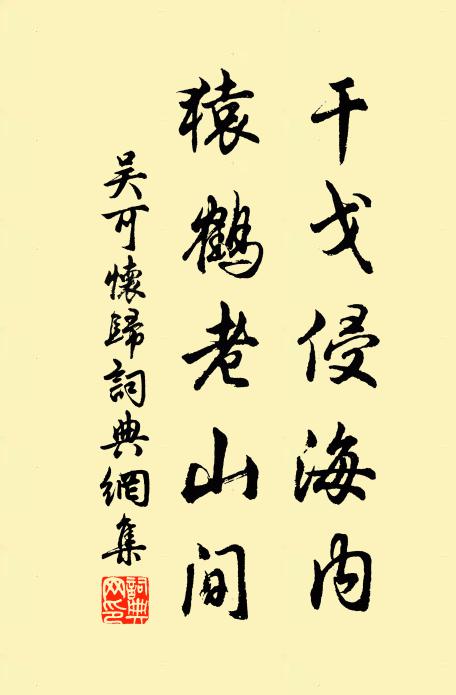 干戈侵海内
猿鹤老山间
吴可懷歸詞典網集
詞典网印